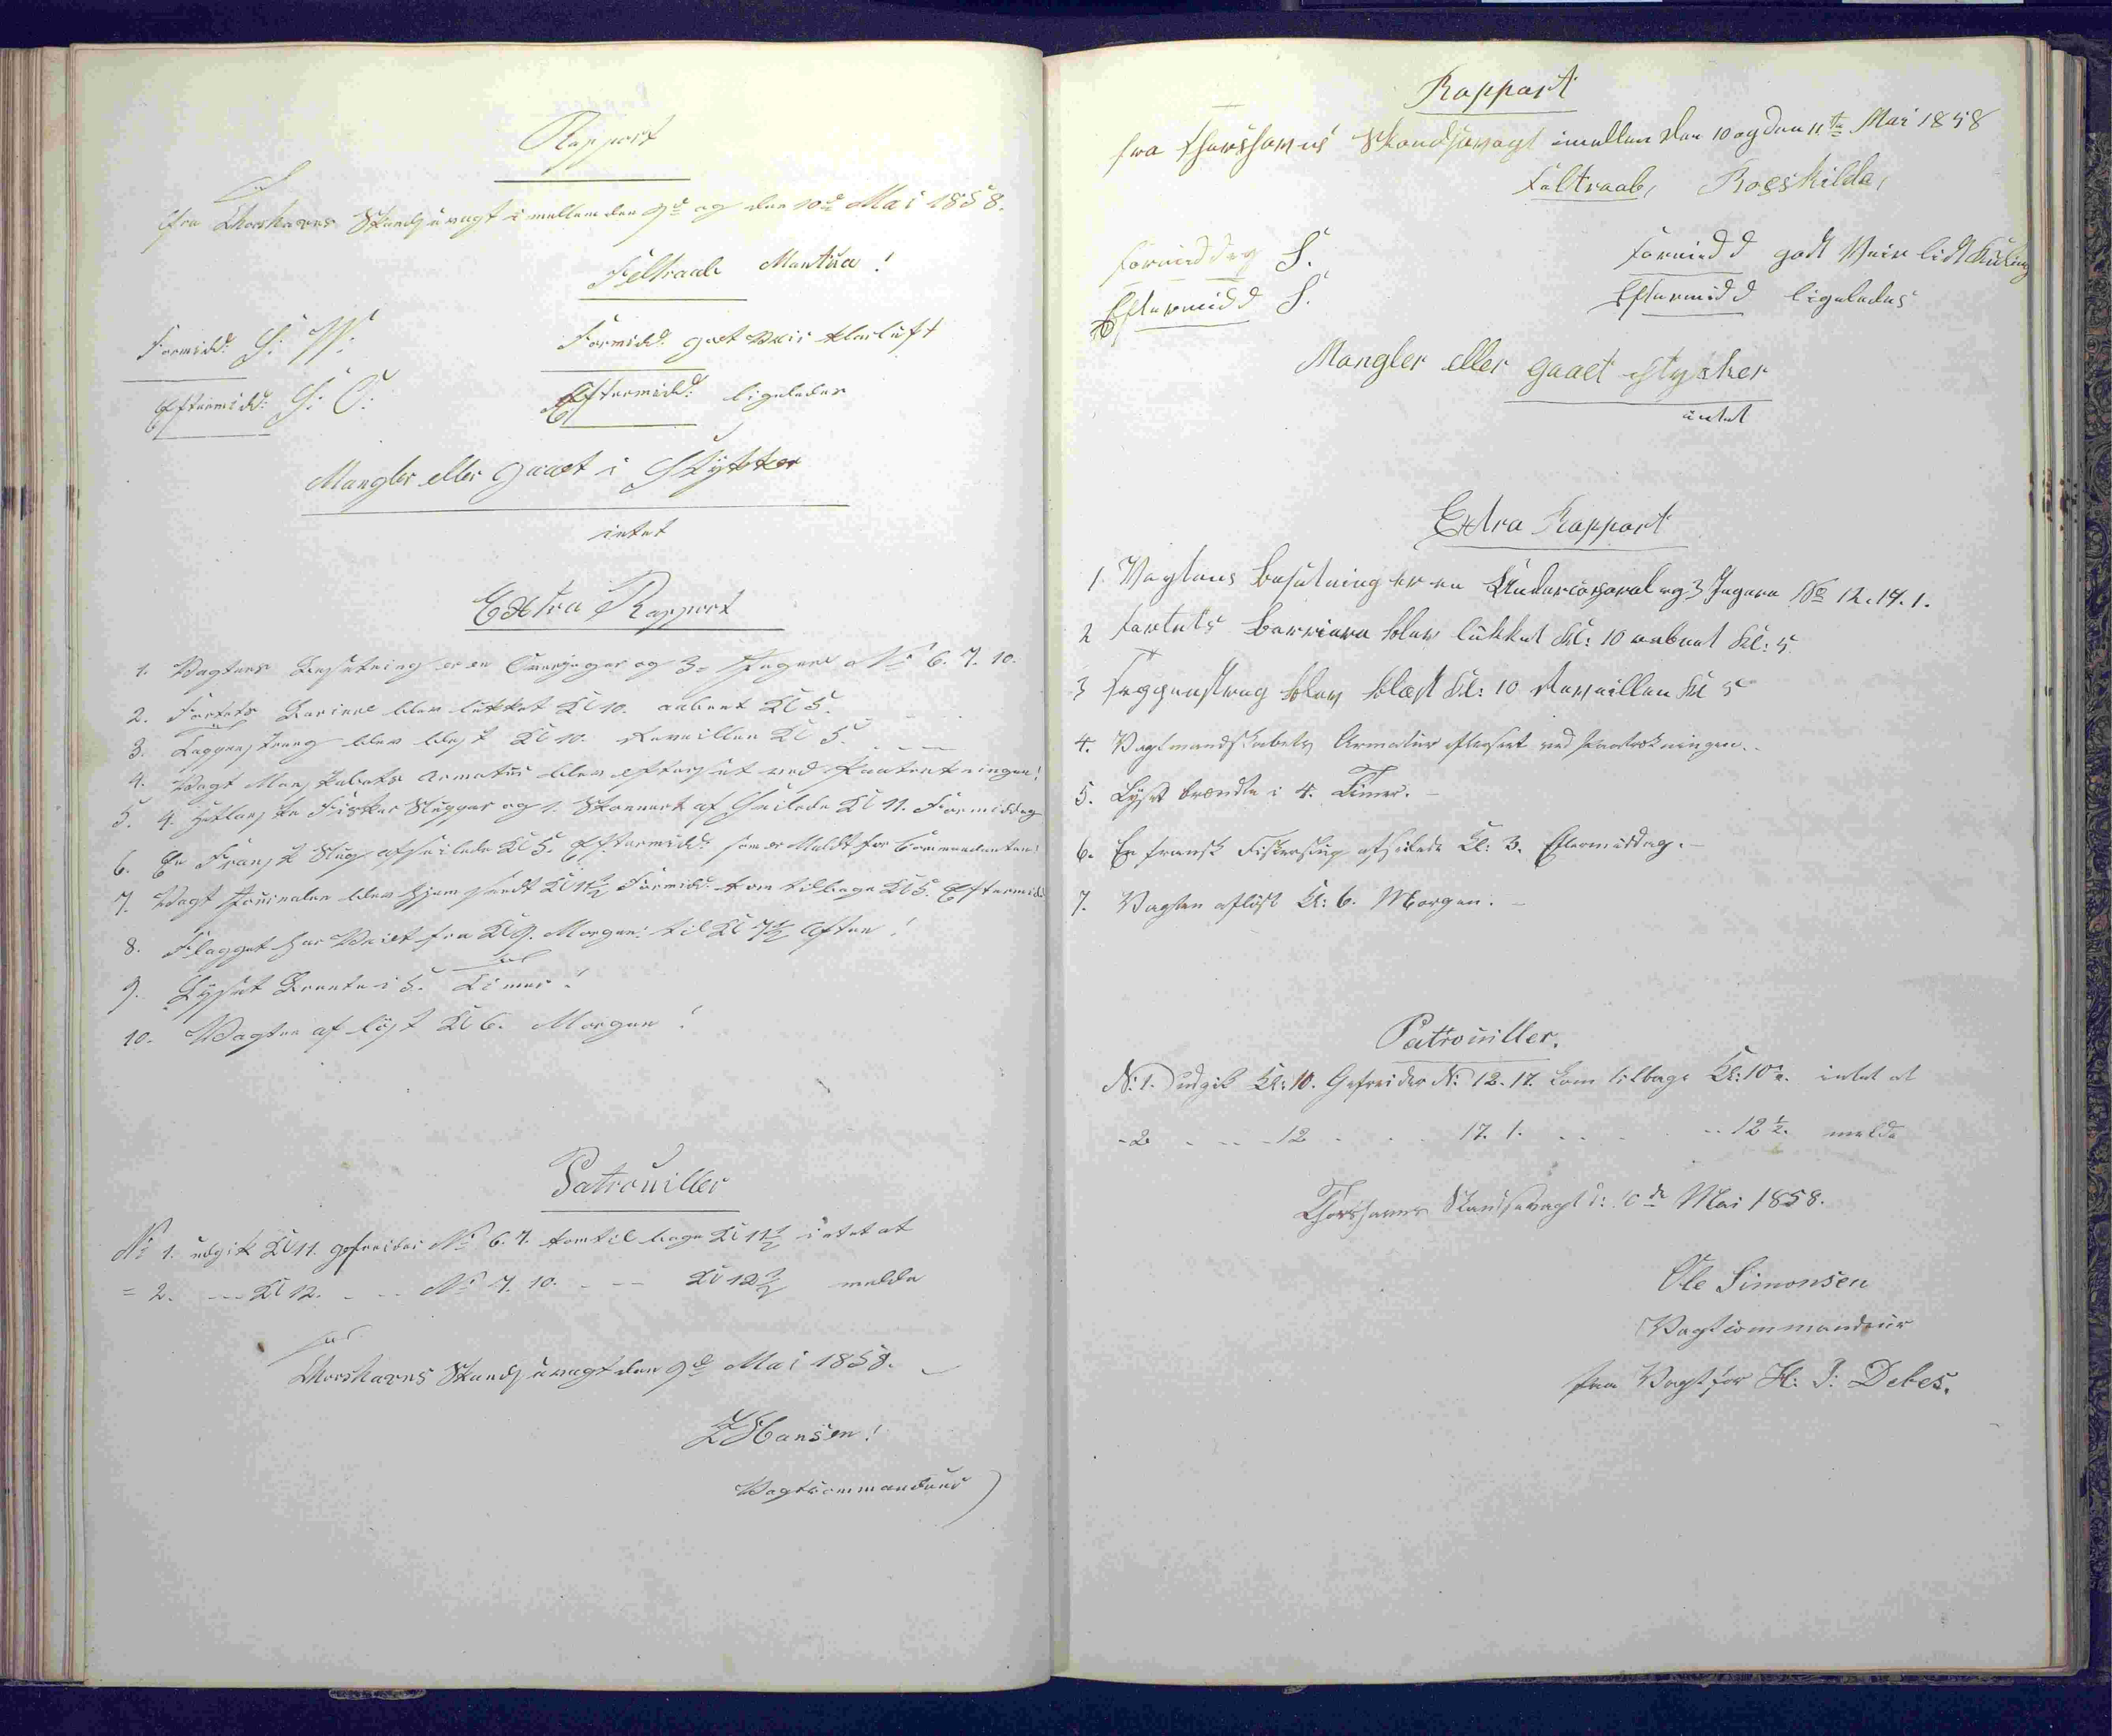 Rapport
fra Thorshavns Skandsevagt imellem den 9de og den 10de Mai 1858.
Feltraab Mantua!
Formidd: S: W: Formidd. godt Veir klarluft
Eftermidd: S: O: Eftermidd: ligeledes
Mangler eller gaaet i Stykker
intet
Extra Rapport
1. Vagtens Besetning er en Overjeger og 3. Jegere No 6. 7. 10.
2. Fortets Bariere blev lukket Kl 10. aabnet Kl 5.
3. Tappenstreg blev blest Kl 10. Reveillen Kl 5.
4. Vagt Manskabets Armatur blev efterset ved Paatrekningen!
5. 4. Hetlanske Fisker Slupper og 1. Skonnert af Seilede Kl 11. Formiddag
6. En Fransk Slup afseilede Kl 5. Eftermidd: som er Meldt for Commendanten!
7. Vagt Jouinalen blev hjem sendt Kl 11½ Formidd: kom tilbage Kl 5. Eftermidd
8. Flagget har Veiet fra Kl 9. Morgen: til Kl 7½ Aften!
9. Lyset Brente i 5. Timer!
10. Vagten af löst Kl 6. Morgen!
Patrouiller
No 1. udgik Kl 11. gefreider No 6. 7. kom til bage Kl 11½ intet at
= 2. -- Kl 12. -- No 7. 10. -- Kl 12½ melde
Thorshavns Skandsevagt den 9de Mai 1858.
Z Hansen!
Vagtcommandeur
Rapport
fra Thorshavns Skandsevagt imellem den 10 og den 11te Mai 1858
Feltraab, Roeskilde,
Formiddag S. Formidd godt Veir lidt Kuling
Eftermidd S. Eftermidd ligeledes
Mangler eller gaaet i stykker
intet
Extra Rapport
1. Vagtens besetning er en Undercorporal og 3 Jegere No 12. 17. 1.
2 Fortets barriere blev lukket Kl: 10 aabnet Kl: 5.
3 Tappenstreg blev blæst Kl: 10 Reveillen Kl 5
4. Vagtmandskabets Armatur efterseet ved Paatrækningen.
5. Lyset brændte i 4. Timer.
6. En fransk Fiskerslup afseilede Kl: 3. Eftermiddag.
7. Vagten aflöst Kl: 6. Morgen.
Patrouiller.
No: 1. udgik Kl: 10. Gefreider No: 12. 17. kom tilbage Kl: 10½. intet at
- 2 .. .. - 12 . . 17. 1. .. .. .. 12½. melde
Thorshavns Skandsevagt d: 10de Mai 1858.
Ole Simonsen
Vagtcommandeur
paa Vagt for H: J: Debes.